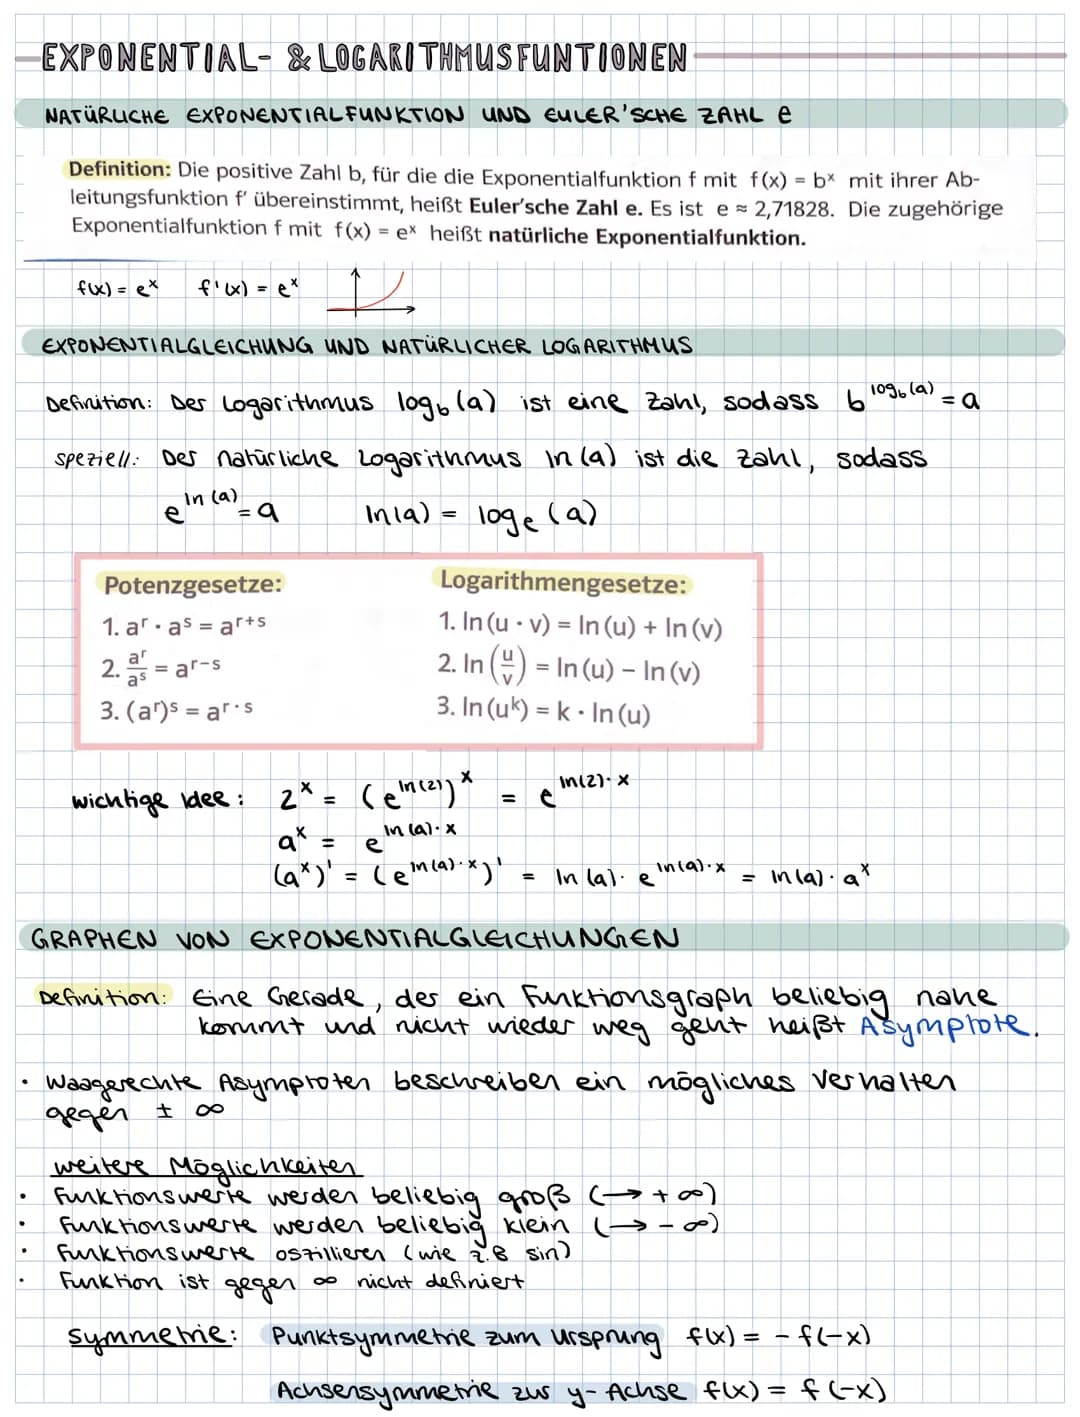 EXPONENTIAL- & LOGARITHMUSFUNTIONEN
NATÜRLICHE EXPONENTIALFUNKTION UND EULER'SCHE ZAHL e
Definition: Die positive Zahl b, für die die Exponentialfunktion f mit f(x) = bˣ mit ihrer Ab-
leitungsfunktion f' übereinstimmt, heißt Euler'sche Zahl e. Es ist e ≈ 2,71828. Die zugehörige
Exponentialfunktion f mit f(x) = eˣ heißt natürliche Exponentialfunktion.
f(x) = eˣ f'(x) = eˣ
EXPONENTIALGLEICHUNG UND NATÜRLICHER LOGARITHMUS
Definition: Der Logarithmus log_b (a) ist eine Zahl, sodass b^(log_b (a)) = a
speziell: Der natürliche Logarithmus ln (a) ist die Zahl, sodass
e^(ln (a)) = a ln(a) = log_e (a)
Potenzgesetze: Logarithmengesetze:
1. aʳ · aˢ = aʳ⁺ˢ 1. ln (u · v) = ln (u) + ln (v)
2. aʳ/aˢ = aʳ⁻ˢ 2. ln (u/v) = ln (u) − ln (v)
3. (aʳ)ˢ = a^(r·s) 3. ln (uᵏ) = k · ln (u)
wichtige Idee: 2ˣ = (e^(ln(2)))ˣ = e^(ln(2)·x)
aˣ = e^(ln (a)·x)
(aˣ)' = (e^(ln(a)·x))' = ln (a) · e^(ln(a)·x) = ln (a) · aˣ
GRAPHEN VON EXPONENTIALGLEICHUNGEN
Definition: Eine Gerade, der ein Funktionsgraph beliebig nahe
kommt und nicht wieder weg geht heißt Asymptote.
• Waagerechte Asymptoten beschreiben ein mögliches Verhalten
gegen ± ∞
weitere Möglichkeiten
• Funktionswerte werden beliebig groß (→ + ∞)
• Funktionswerte werden beliebig klein (→ − ∞)
• Funktionswerte oszillieren (wie z.B sin)
• Funktion ist gegen ∞ nicht definiert
Symmetrie: Punktsymmetrie zum Ursprung f(x) = − f(−x)
Achsensymmetrie zur y-Achse f(x) = f (−x)